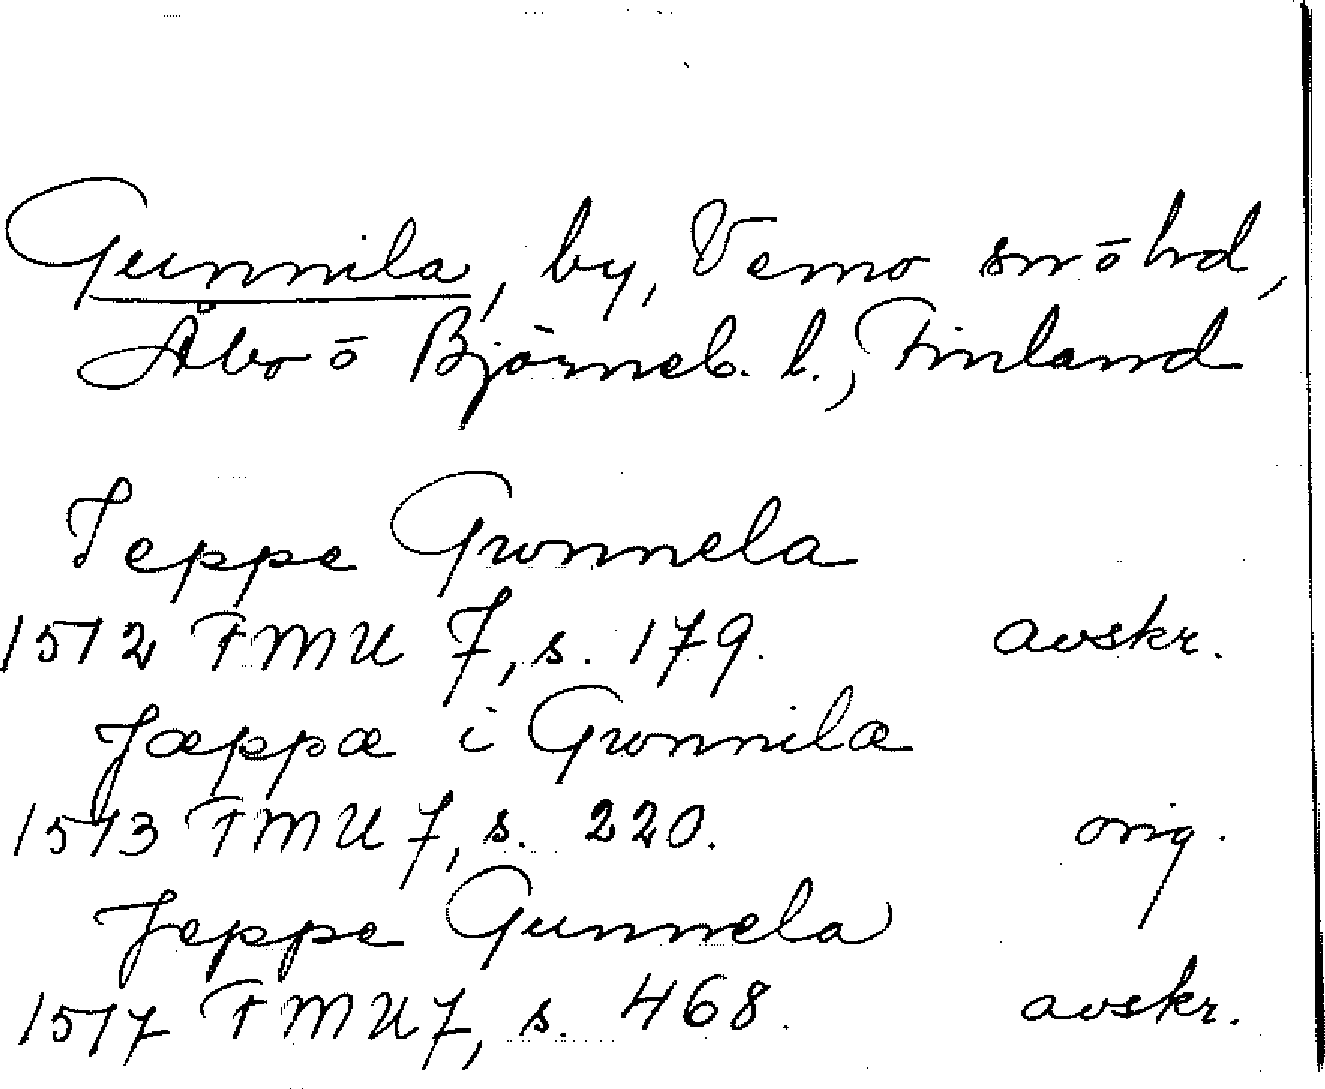 Gunnila, by, Vemo sn o hd,
Åbo o Björneb. l., Finland
Jeppe Gwnnela
1512 FMU 7, s. 179. avskr.
Jæppæ i Gwnnilæ
1513 FMU 7, s. 220. orig.
Jeppe Gunnela
1517 FMU 7, s. 468. avskr.